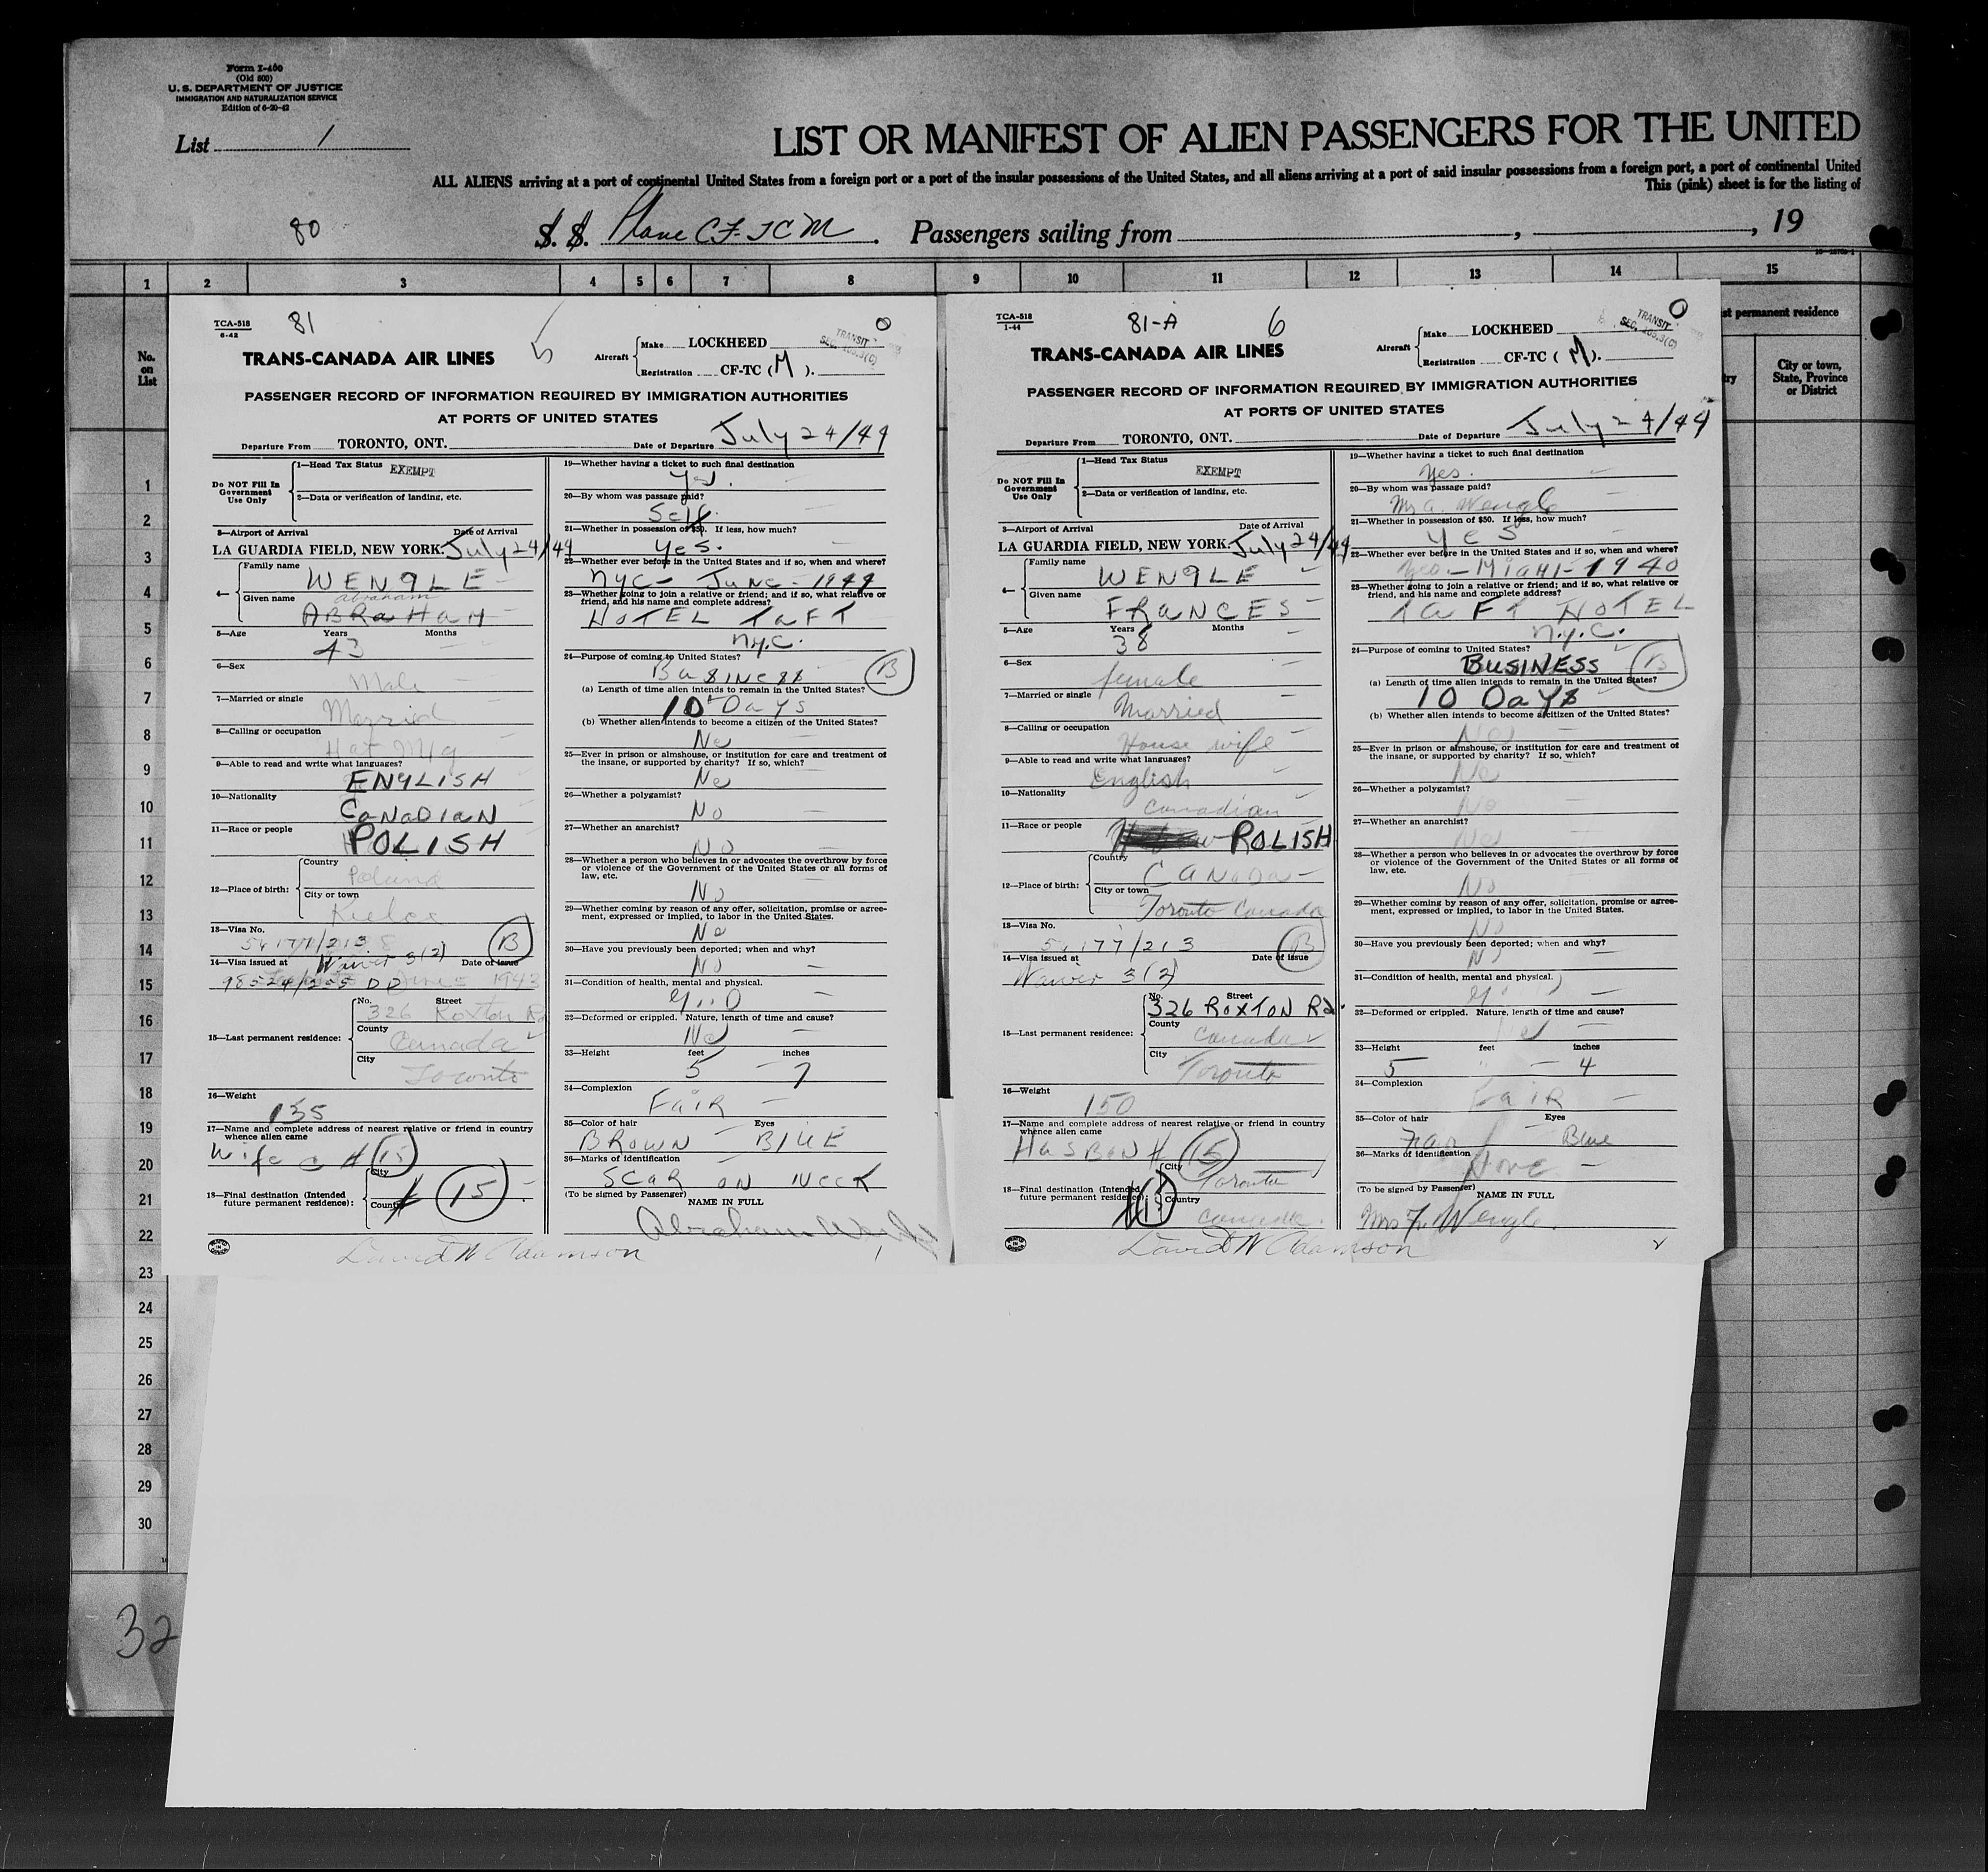 Form I-460
(Old 500)
U. S. DEPARTMENT OF JUSTICE
IMMIGRATION AND NATURALIZATION SERVICE
Edition of 6-20-42
List 1
LIST OR MANIFEST OF ALIEN PASSENGERS FOR THE UNITED
ALL ALIENS arriving at a port of continental United States from a foreign port or a port of the insular possessions of the United States, and all aliens arriving at a port of said insular possessions from a foreign port, a port of continental United
This (pink) sheet is for the listing of
80
S. S. Plane CF-TCM. Passengers sailing from , , 19
1 2 3 4 5 6 7 8 9 10 11 12 13 14 15
No.
on
List
st permanent residence
City or town,
State, Province
or District
1
2
3
4
5
6
7
8
9
10
11
12
13
14
15
16
17
18
19
20
21
22
23
24
25
26
27
28
29
30
32
TCA-518
6-42
81
0
TRANSIT
SEC.
TRANS-CANADA AIR LINES
Aircraft
Make LOCKHEED
Registration CF-TC (M).
PASSENGER RECORD OF INFORMATION REQUIRED BY IMMIGRATION AUTHORITIES
AT PORTS OF UNITED STATES
Departure From TORONTO, ONT. Date of Departure July 24/44
Do NOT Fill In
Government
Use Only
1—Head Tax Status EXEMPT
2—Data or verification of landing, etc.
3—Airport of Arrival Date of Arrival
LA GUARDIA FIELD, NEW YORK. July 24/44
4—
Family name WENGLE
abraham
Given name ABRaHaM
5—Age Years Months
43
6—Sex
Male
7—Married or single
Married
8—Calling or occupation
Hat Mfg
9—Able to read and write what languages?
ENGLISH
10—Nationality
CaNaDIaN
11—Race or people
POLISH
12—Place of birth:
Country
Poland
City or town
Kielce
13—Visa No.
B
14—Visa issued at Waiver 3(2) Date of issue
1943
15—Last permanent residence:
No. Street
326 Roxton Rd
County
Canada
City
Toronto
16—Weight
135
17—Name and complete address of nearest relative or friend in country
whence alien came
Wife # 15
18—Final destination (Intended
future permanent residence):
City
Country # 15
19—Whether having a ticket to such final destination
Yes.
20—By whom was passage paid?
Self.
21—Whether in possession of $50. If less, how much?
Yes.
22—Whether ever before in the United States and if so, when and where?
NYC - JUNE - 1944
23—Whether going to join a relative or friend; and if so, what relative or
friend, and his name and complete address?
HOTEL TaFT
N.Y.C.
24—Purpose of coming to United States?
BuSINESS
B
(a) Length of time alien intends to remain in the United States?
10 DaYS
(b) Whether alien intends to become a citizen of the United States?
No
25—Ever in prison or almshouse, or institution for care and treatment of
the insane, or supported by charity? If so, which?
No
26—Whether a polygamist?
No
27—Whether an anarchist?
No
28—Whether a person who believes in or advocates the overthrow by force
or violence of the Government of the United States or all forms of
law, etc.
No
29—Whether coming by reason of any offer, solicitation, promise or agree-
ment, expressed or implied, to labor in the United States.
No
30—Have you previously been deported; when and why?
No
31—Condition of health, mental and physical.
GooD
32—Deformed or crippled. Nature, length of time and cause?
No
33—Height feet inches
5 — 7
34—Complexion
FaIR
35—Color of hair Eyes
BROWN — BlUE
36—Marks of identification
SCaR ON NECK
(To be signed by Passenger)
NAME IN FULL
Abraham Wengle
David W Adamson
TCA-518
1-44
81-A
6
0
TRANSIT
SEC.
TRANS-CANADA AIR LINES
Aircraft
Make LOCKHEED
Registration CF-TC (M).
PASSENGER RECORD OF INFORMATION REQUIRED BY IMMIGRATION AUTHORITIES
AT PORTS OF UNITED STATES
Departure From TORONTO, ONT. Date of Departure July 24/44
Do NOT Fill In
Government
Use Only
1—Head Tax Status EXEMPT
2—Data or verification of landing, etc.
3—Airport of Arrival Date of Arrival
LA GUARDIA FIELD, NEW YORK. July 24/44
4—
Family name WENGLE
Given name FRaNCES
5—Age Years Months
38
6—Sex
female
7—Married or single
Married
8—Calling or occupation
House wife
9—Able to read and write what languages?
English
10—Nationality
Canadian
11—Race or people
POLISH
12—Place of birth:
Country
CaNaDa
City or town
Toronto Canada
13—Visa No.
54177/213
B
14—Visa issued at Date of issue
Waiver 3(2)
15—Last permanent residence:
No. Street
326 ROXTON Rd.
County
Canada
City
Toronto
16—Weight
150
17—Name and complete address of nearest relative or friend in country
whence alien came
HuSBaN # 15
18—Final destination (Intended
future permanent residence):
City
Toronto
Country
Canada.
#15
19—Whether having a ticket to such final destination
Yes.
20—By whom was passage paid?
Mr a. Wengle
21—Whether in possession of $50. If less, how much?
YES
22—Whether ever before in the United States and if so, when and where?
Yes — MIaMI — 1940
23—Whether going to join a relative or friend; and if so, what relative or
friend, and his name and complete address?
TaFT HOTEL
N.Y.C.
24—Purpose of coming to United States?
BUSINESS
B
(a) Length of time alien intends to remain in the United States?
10 DaYS
(b) Whether alien intends to become a citizen of the United States?
No
25—Ever in prison or almshouse, or institution for care and treatment of
the insane, or supported by charity? If so, which?
No
26—Whether a polygamist?
No
27—Whether an anarchist?
No
28—Whether a person who believes in or advocates the overthrow by force
or violence of the Government of the United States or all forms of
law, etc.
No
29—Whether coming by reason of any offer, solicitation, promise or agree-
ment, expressed or implied, to labor in the United States.
No
30—Have you previously been deported; when and why?
No
31—Condition of health, mental and physical.
32—Deformed or crippled. Nature, length of time and cause?
33—Height feet inches
5 — 4
34—Complexion
FaIR
35—Color of hair Eyes
Fair Blue
36—Marks of identification
NONE
(To be signed by Passenger)
NAME IN FULL
Mrs F. Wengle.
David W Adamson